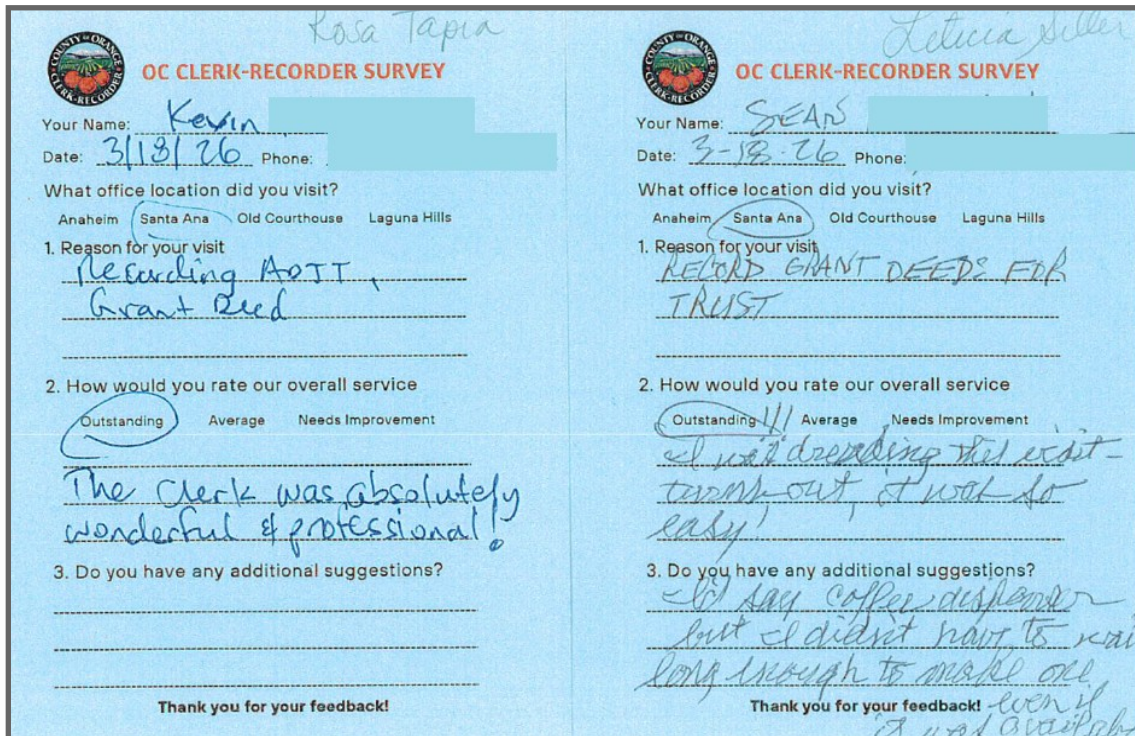 Rosa Tapia
COUNTY OF ORANGE
CLERK-RECORDER
OC CLERK-RECORDER SURVEY
Your Name: Kevin
Date: 3/18/26 Phone:
What office location did you visit?
Anaheim Santa Ana Old Courthouse Laguna Hills
1. Reason for your visit
Recording AOTT,
Grant Deed
2. How would you rate our overall service
Outstanding Average Needs Improvement
The Clerk was absolutely
wonderful & professional!
3. Do you have any additional suggestions?
Thank you for your feedback!
Leticia Siller
COUNTY OF ORANGE
CLERK-RECORDER
OC CLERK-RECORDER SURVEY
Your Name: SEAN
Date: 3-18-26 Phone:
What office location did you visit?
Anaheim Santa Ana Old Courthouse Laguna Hills
1. Reason for your visit
RECORD GRANT DEEDS FOR
TRUST
2. How would you rate our overall service
Outstanding!!! Average Needs Improvement
I was dreading this visit-
turns out, it was so
easy!
3. Do you have any additional suggestions?
I'd say coffee dispenser
but I didn't have to wai
long enough to make one
Thank you for your feedback! even if
it was availab